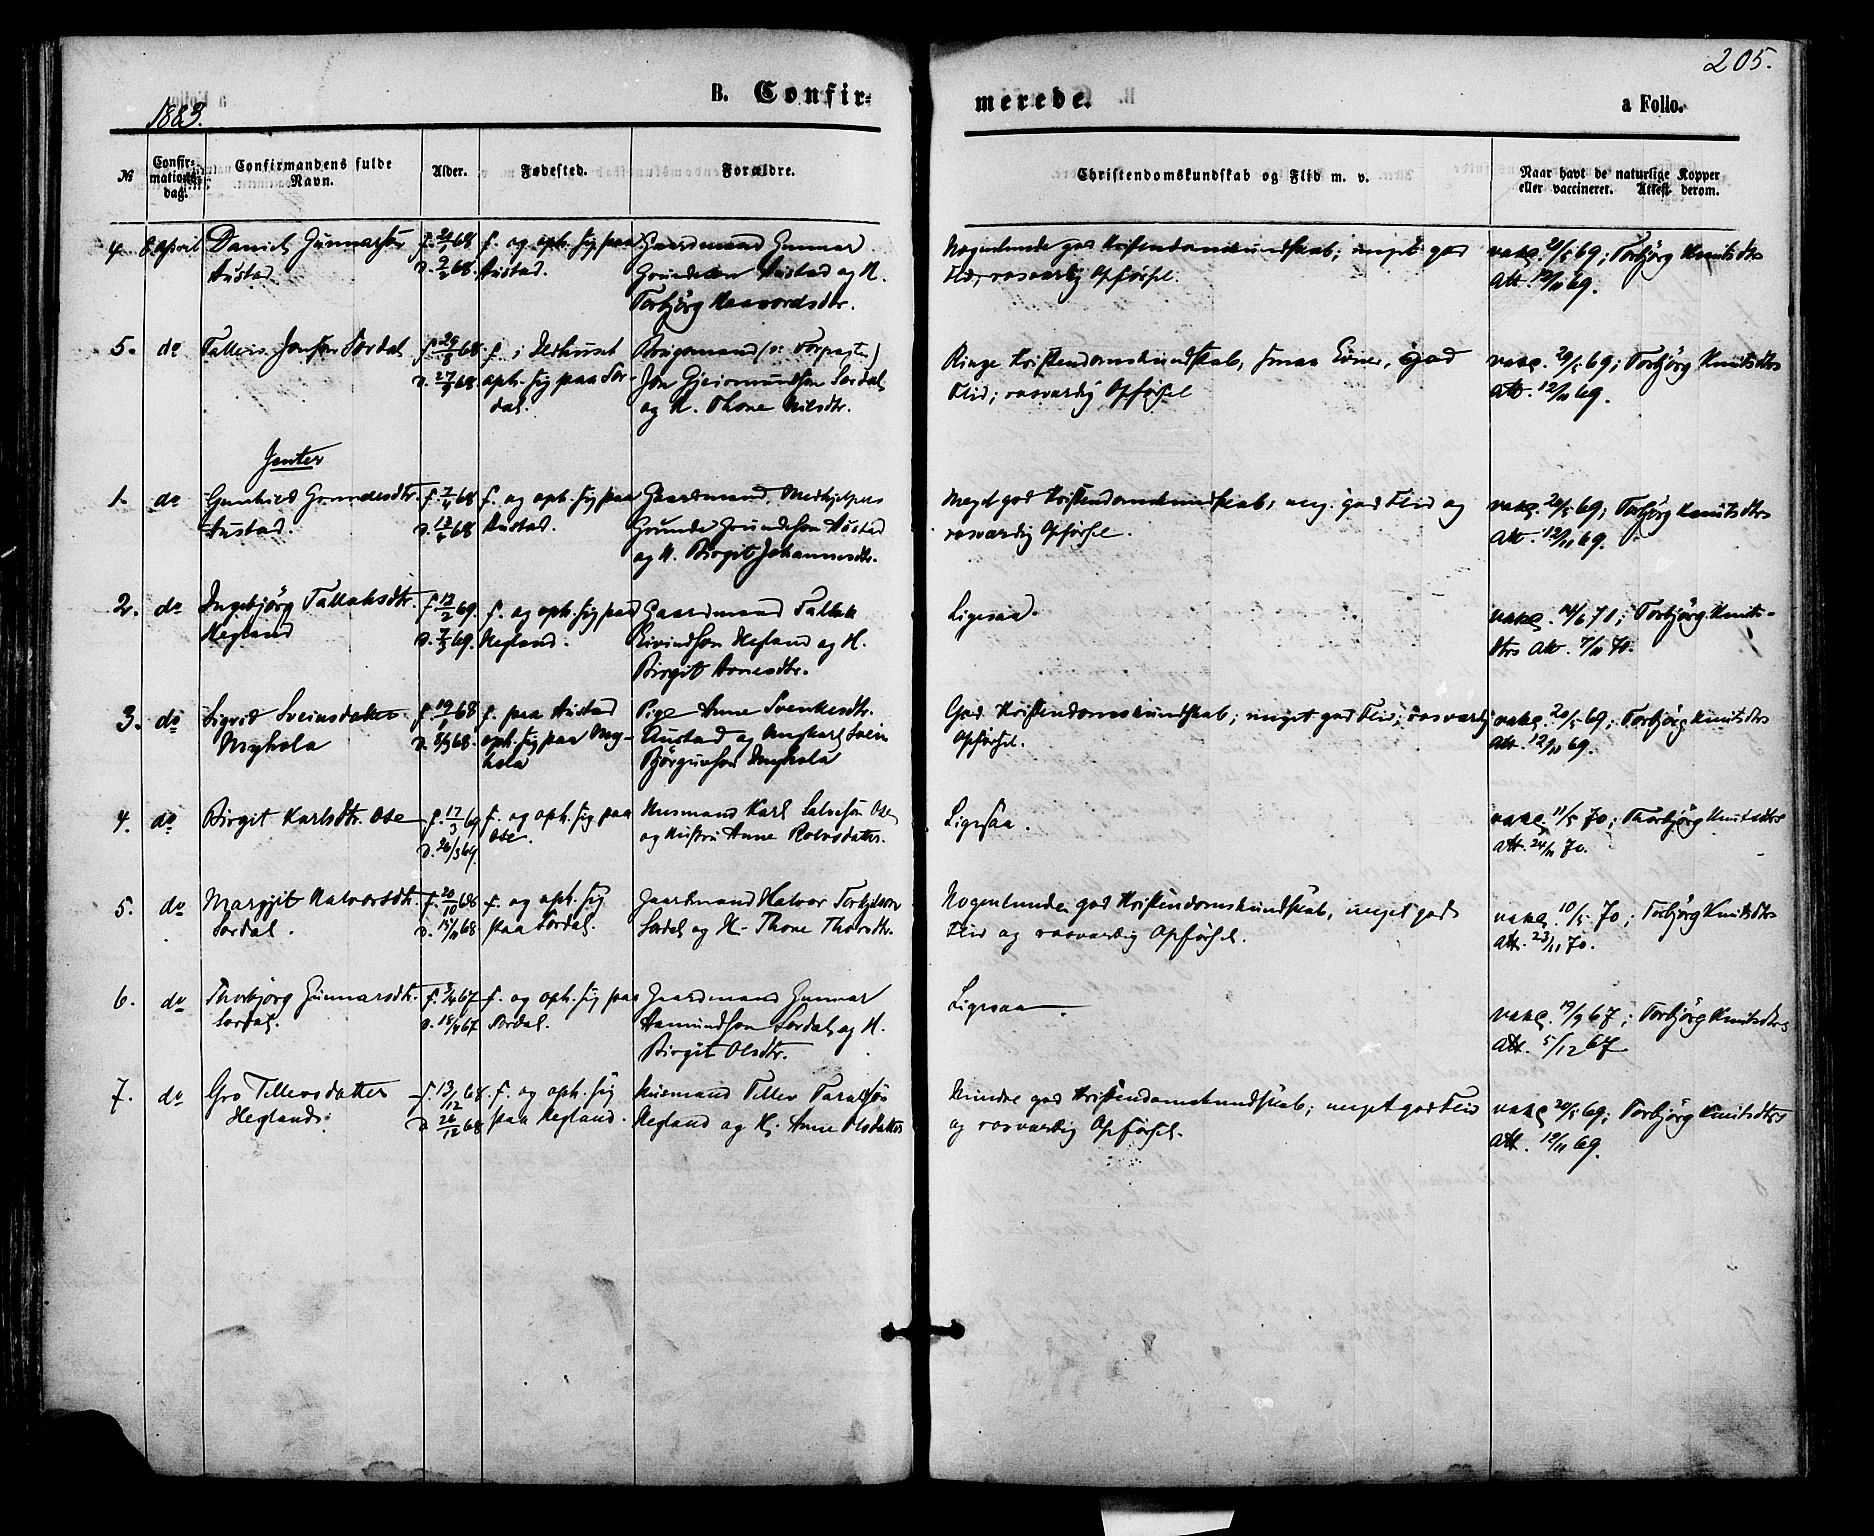 205.
1883.
B. Confir-
merede.
a Folio.
№
Confir-
mations-
dag.
Confirmandens fulde
Navn.
Alder.
Fødested.
Forældre.
Christendomskundskab og Flid m. v.
Naar havt de naturlige Kopper
eller vaccineret. Attest derom.
4. 8 April Daniel Gunnarsen
Austad
f. og oph. sig paa
Austad.
Gaardmand Gunnar
Grundesen Austad og H.
Torbjörg Haavordsdtr.
Nogenlunde god Kristendomskundskab; meget god
Flid, rosværdig Opførsel.
Torbjörg Knutsdtrs
Att. 12/11 69.
5. do Tallev. Jonsen Sordal
f. 29/8 68
D. 27/9 68.
oph. sig paa Sor-
dal.
Jon Gjeirmundsen Sordal
og H. Thone Nilsdtr.
Ringe Kristendomskundskab, smaa Evner, god
Flid; rosværdig Opførsel
vakc. 20/5 69; Torbjörg Knutsdtrs
Att. 12/11 69.
Jenter
1. do Gunhild Grundesdtr.
Austad.
f. og oph. sig paa
Austad.
Gaardmand, Medhjelper
Grunde Grundesen Austad
og H. Birgit Johannesdtr.
Meget god Kristendomskundskab, meg. god Flid og
rosværdig Opførsel.
vakc. 20/5 69; Torbjörg Knutsdtrs
Att. 12/11 69.
2. do Ingebjörg Tallaksdtr.
Hegland
f. 17/2 69.
D. 7/3 69.
f. og oph. sig paa
Hegland.
Gaardmand Tallak
Eivindsen Hegland og H.
Birgit Arnesdtr.
Ligesaa.
vakc. 14/6 70; Torbjörg Knuts-
dtrs Att. 7/11 70.
3. do Sigrid Sveinsdatter
Myhola
f. paa Austad
oph. sig paa My-
hola
Pige Anne Svenkesdtr.
Austad og Ungkarl Svein
Björguvsen Myhola
God Kristendomskundskab; meget god Flid; rosværdig
Opførsel.
vakc. 20/5 69; Torbjörg Knutsdtrs
Att. 12/11 69.
4. do Birgit Karlsdtr. Ose
f. 17/3 69
D. 26/3 69.
f. og oph. sig paa
Ose.
Husmand Karl Salvesen Ose
og Hustru Anne Rolvsdatter.
Ligesaa.
vakc. 11/5 70; Thorbjörg Knutsdtrs
Att. 24/11 70.
5. do Margjit Halvorsdtr.
Sordal.
f. 20/10 68
D. 15/11 68
f. og oph. sig
paa Sordal.
Gaardmand Halvor
Sordal og H. Thone Thorsdtr.
Nogenlunde god Kristendomskundskab, meget god
Flid og rosværdig Opførsel.
vakc. 10/5 70; Torbjörg Knutsdtrs
Att. 23/11 70.
6. do Thorbjörg Gunnarsdtr.
Sordal.
f. og oph. sig paa
Sordal.
Gaardmand Gunnar
Aamundsen Sordal og H.
Birgit Olsdtr.
Ligesaa
vakc. 19/9 67; Torbjörg Knutsdtrs
Att. 5/12 67
7. do Gro Tellevsdatter
Hegland.
f. 13/12 68.
D. 26/12 68
f. og oph. sig
paa Hegland.
Husmand Tellev Taralsen
Hegland og H. Anne Olsdatter
Mindre god Kristendomskundskab; meget god Flid
og rosværdig Opførsel.
vakc 20/5 69; Torbjörg Knutsdtrs
Att. 12/11 69.